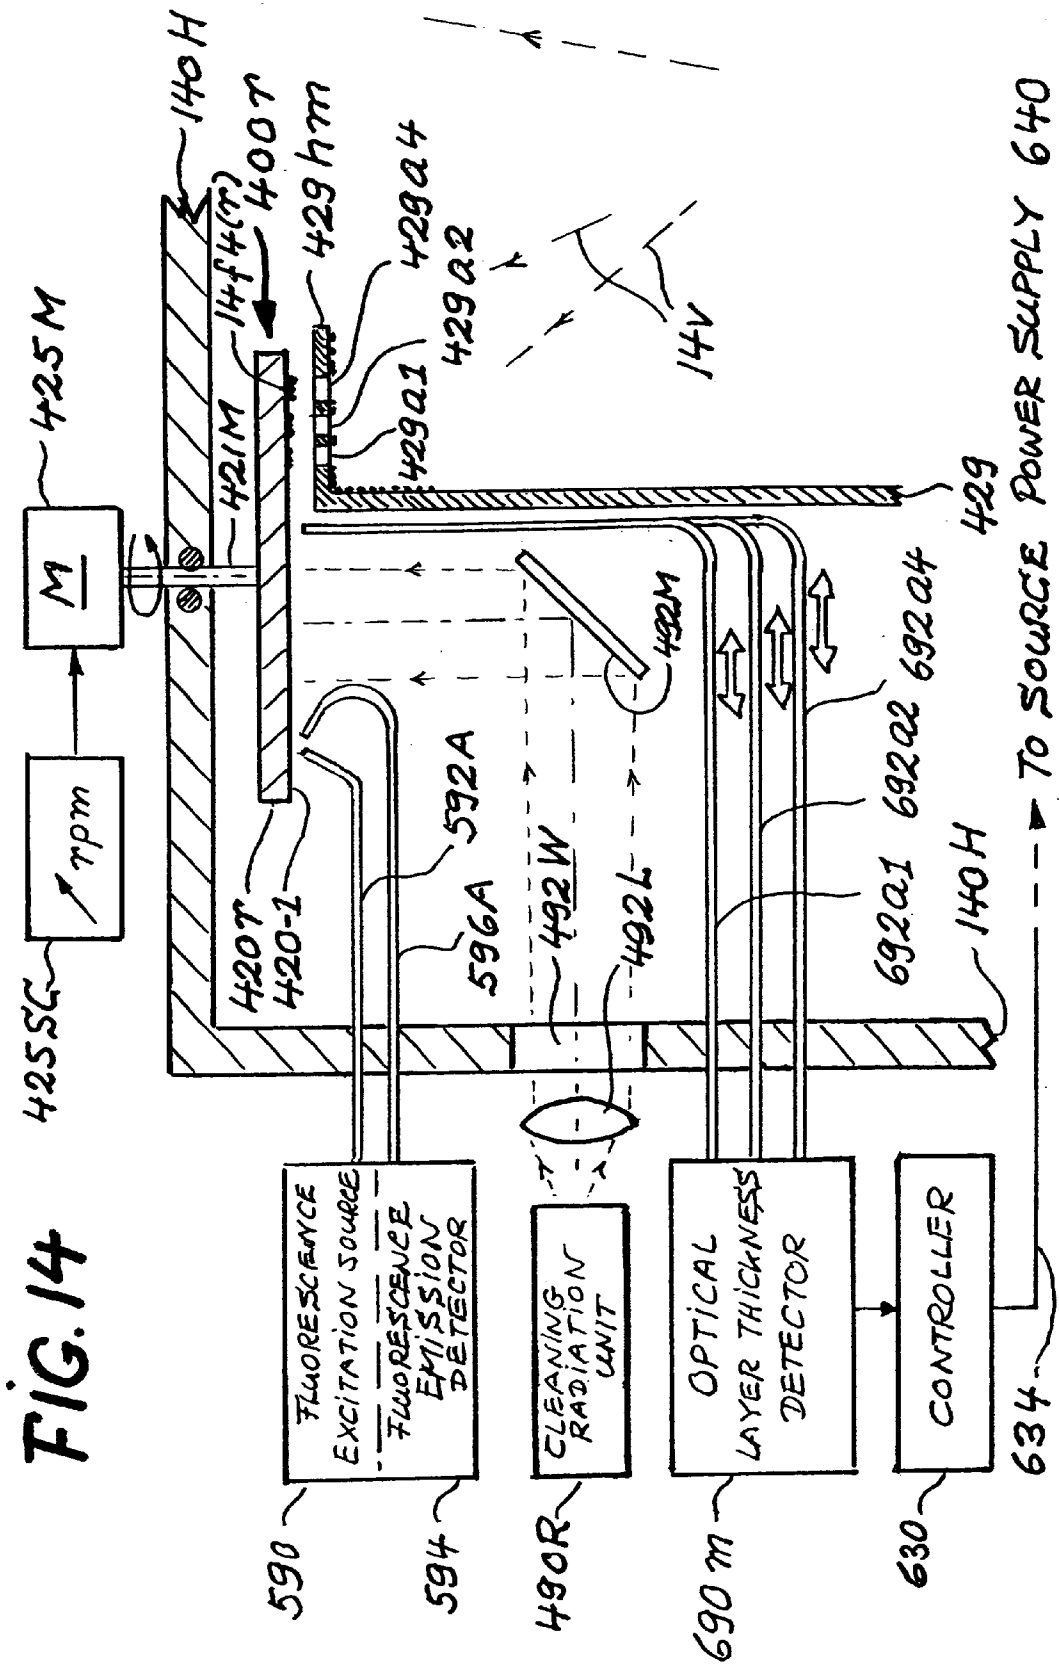 FIG. 14
425SC
rpm
M
425M
140H
421M
14f4(r)
400r
420r
420-1
429hm
429a4
429a2
429a1
14V
429
592A
596A
492W
492L
492M
692a1
692a2
692a4
140H
590
FLUORESCENCE
EXCITATION SOURCE
FLUORESCENCE
EMISSION
DETECTOR
594
490R
CLEANING
RADIATION
UNIT
690m
OPTICAL
LAYER THICKNESS
DETECTOR
630
CONTROLLER
634
TO SOURCE POWER SUPPLY 640